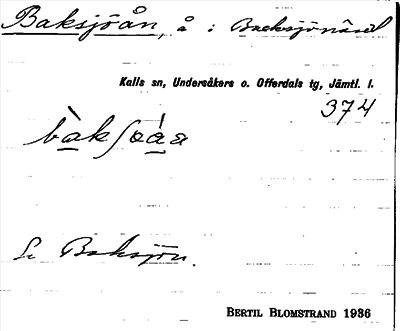 Baksjöån, å i Backsjönäset
Kalls sn, Undersåkers o. Offerdals tg, Jämtl. l.
374
Se Baksjön.
BERTIL BLOMSTRAND 1936